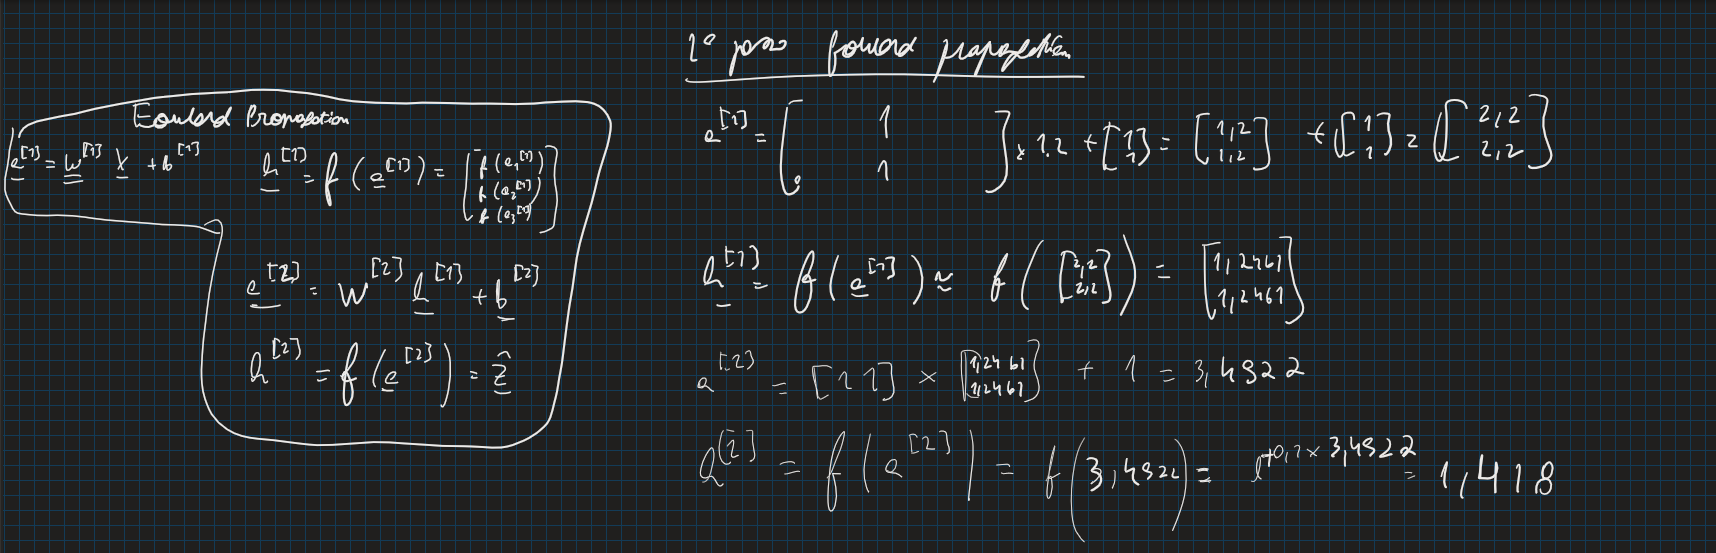 Foward Propagation
a^[1] = W^[1] x + b^[1]
h^[1] = f(a^[1]) = [f(a₁^[1]) f(a₂^[1]) f(a₃^[1])]
a^[2] = W^[2] h^[1] + b^[2]
h^[2] = f(a^[2]) = ẑ
1º passo foward propagation
a^[1] = [1 1] × 1.2 + [1 1] = [1,2 1,2] + [1 1] = [2,2 2,2]
h^[1] = f(a^[1]) ≈ f([2,2 2,2]) = [1,2461 1,2461]
a^[2] = [1 1] × [1,2461 1,2461] + 1 = 3,4922
h^[2] = f(a^[2]) = f(3,4922) = e^+0,1×3,4922 = 1,418